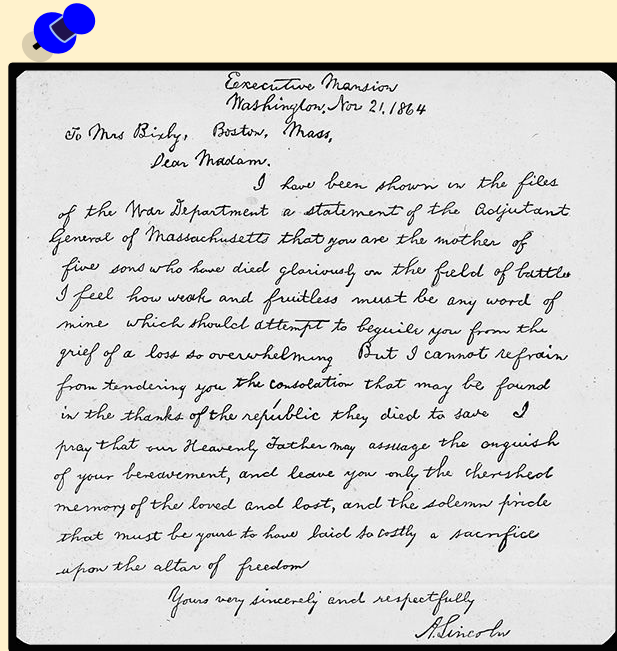 Executive Mansion
Washington, Nov 21, 1864
To Mrs Bixby, Boston, Mass,
Dear Madam.
I have been shown in the files
of the War Department a statement of the Adjutant
General of Massachusetts that you are the mother of
five sons who have died gloriously on the field of battle
I feel how weak and fruitless must be any word of
mine which should attempt to beguile you from the
grief of a loss so overwhelming But I cannot refrain
from tendering you the consolation that may be found
in the thanks of the republic they died to save I
pray that our Heavenly Father may assuage the anguish
of your bereavement, and leave you only the cherished
memory of the loved and lost, and the solemn pride
that must be yours to have laid so costly a sacrifice
upon the altar of freedom
Yours very sincerely and respectfully
A. Lincoln